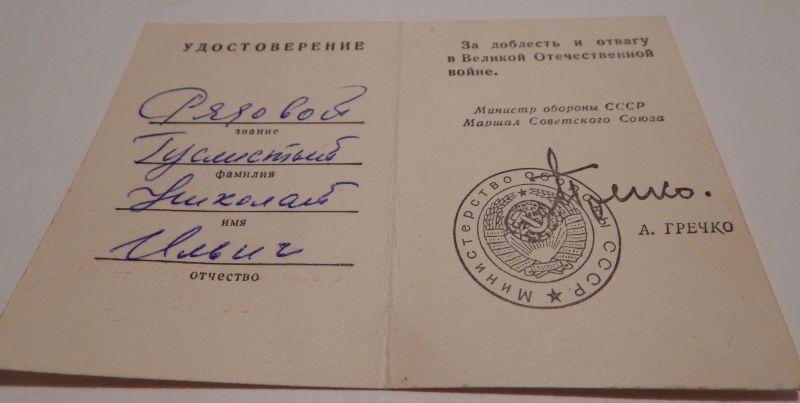 УДОСТОВЕРЕНИЕ
Рядовой
звание
Гуслистый
фамилия
Николай
имя
Ильич
отчество
За доблесть и отвагу
в Великой Отечественной
войне.
Министр обороны СССР
Маршал Советского Союза
Министерство обороны СССР
А. ГРЕЧКО